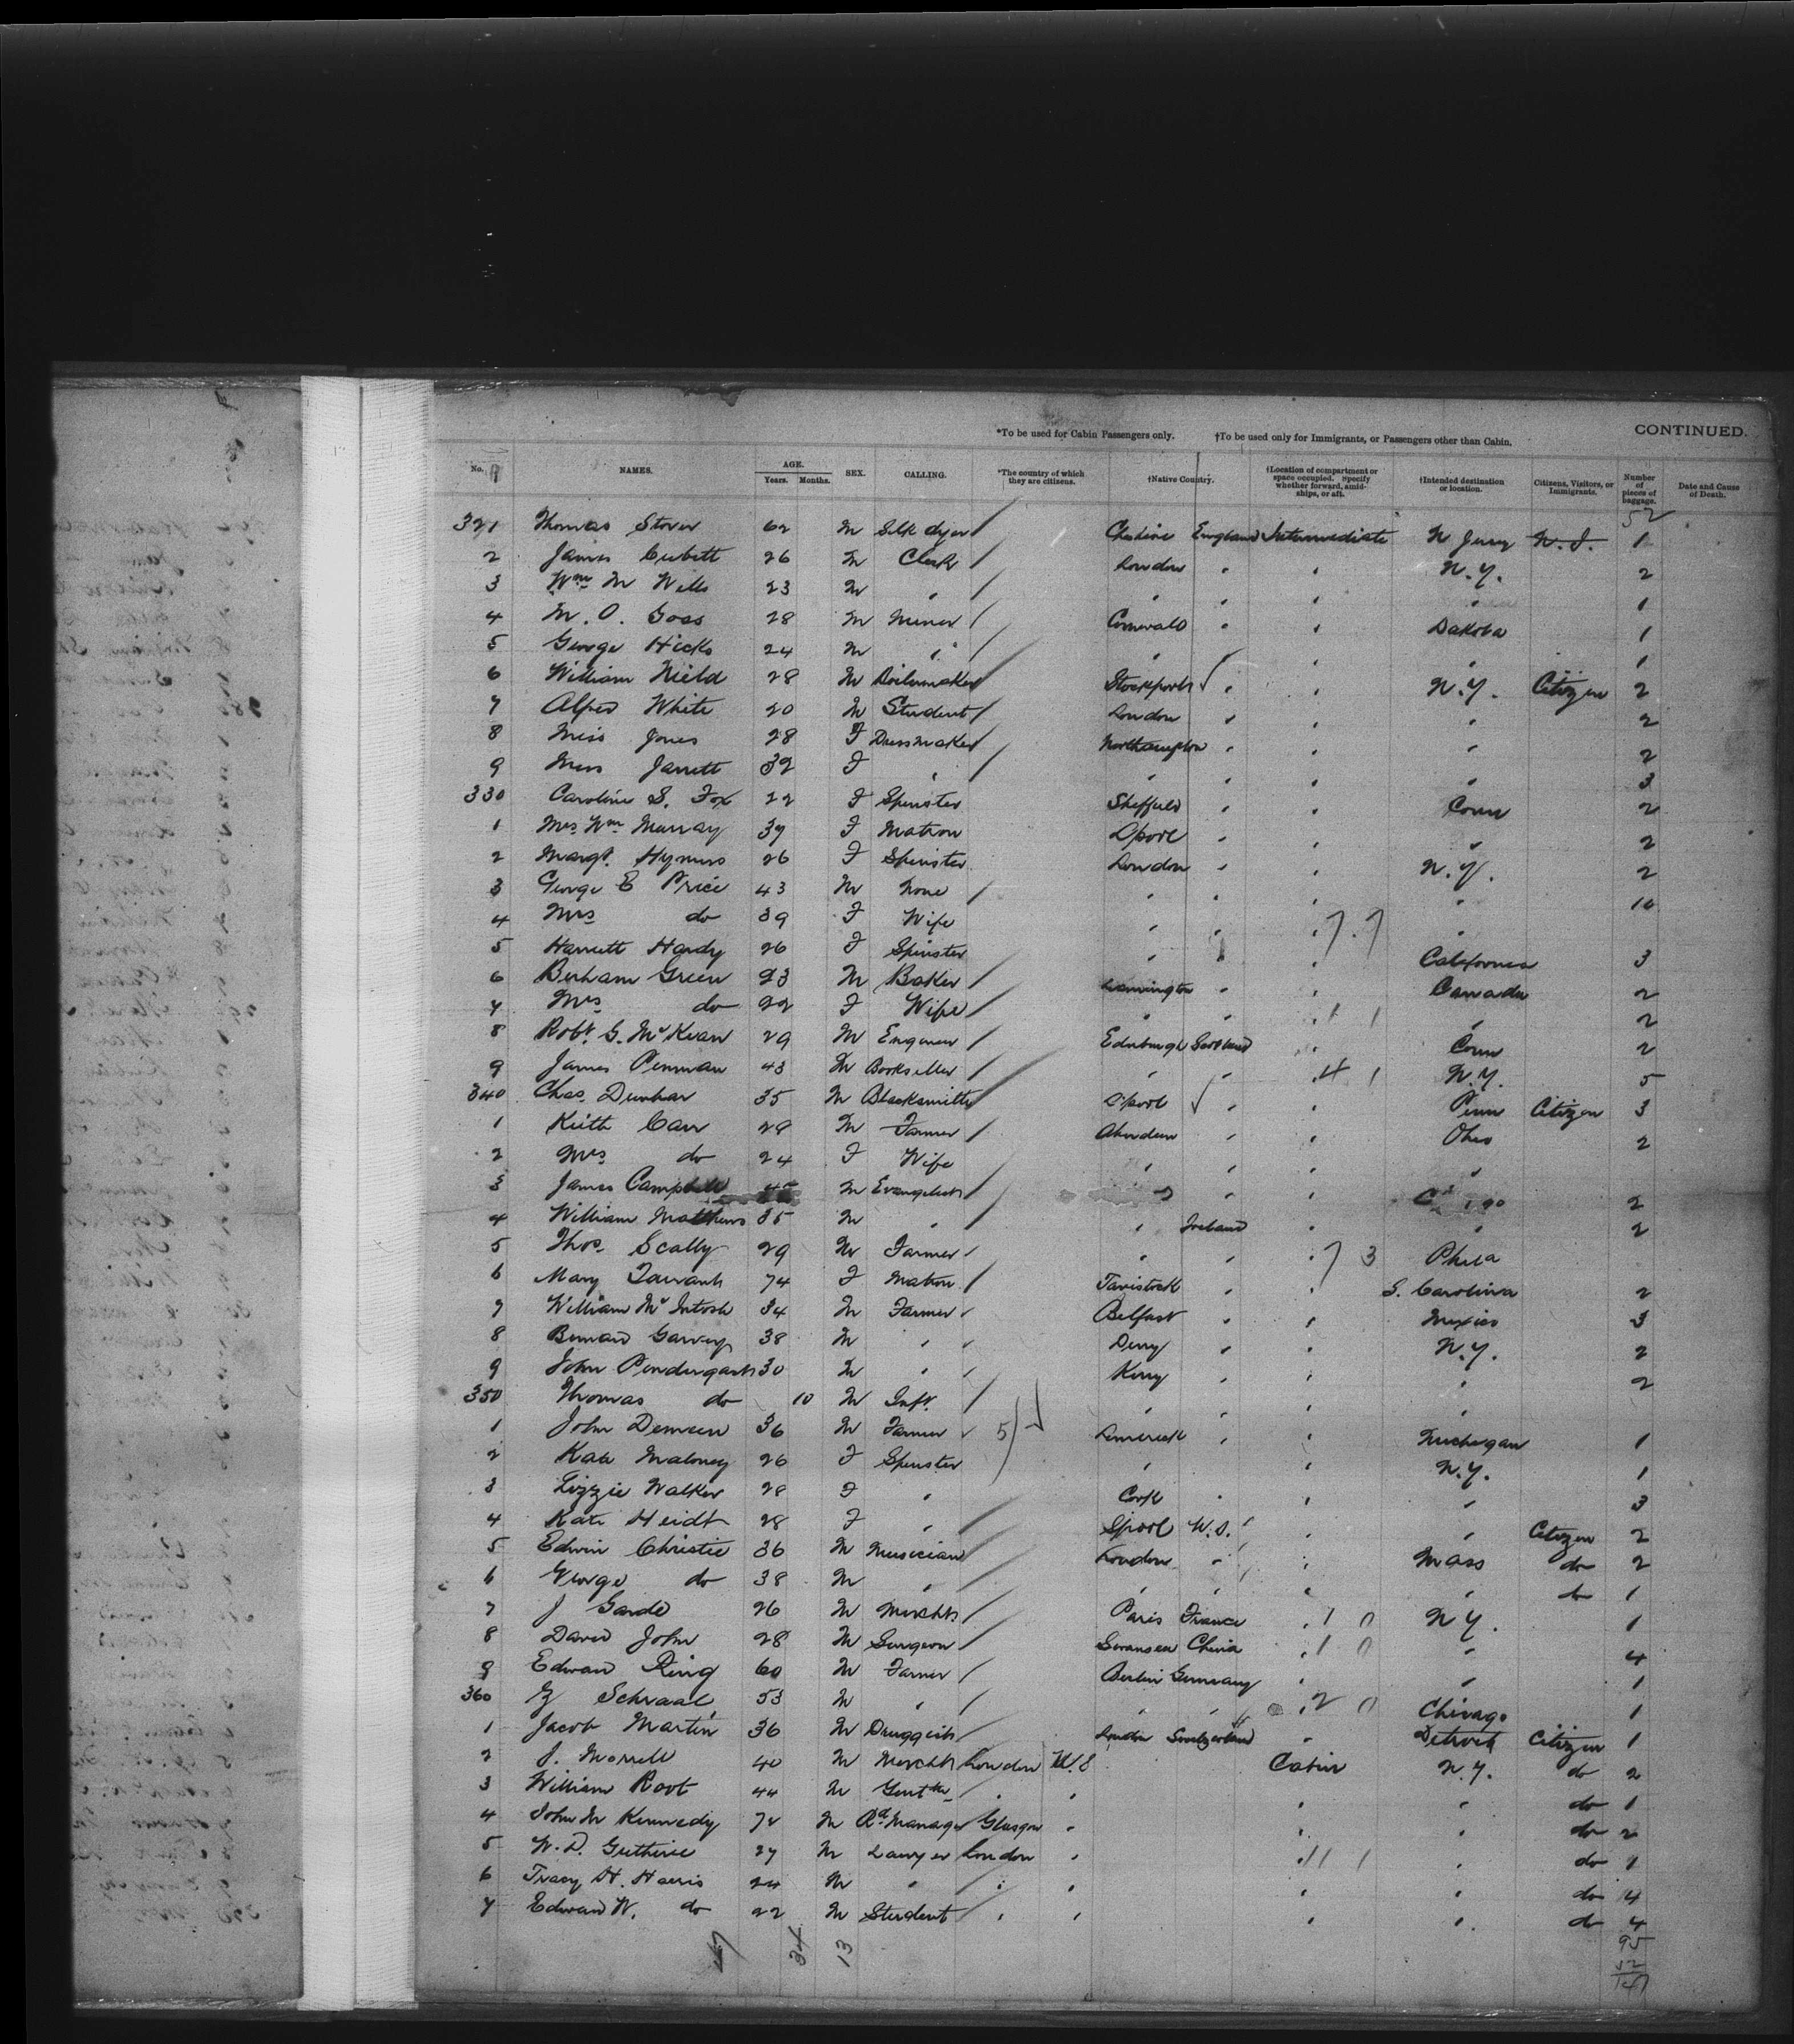 *To be used for Cabin Passengers only. †To be used only for Immigrants, or Passengers other than Cabin. CONTINUED.
No. NAMES. AGE. Years. Months. SEX. CALLING. *The country of which they are citizens. †Native Country. †Location of compartment or space occupied. Specify whether forward, amidships, or aft. †Intended destination or location. Citizens, Visitors, or Immigrants. Number of pieces of baggage. Date and Cause of Death.
52
321 Thomas Stover 62 M Silk dyer Cheshire England Intermediate N Jersy N.J. 1
2 James Cubett 26 M Clerk London " " N.Y. 2
3 Wm M Wells 23 M " " " " " 1
4 M. O. Goss 28 M Miner Cornwald " " Dakota 1
5 George Hicks 24 M " " " " " 1
6 William Nield 28 M Boilermaker Stockport " " N.Y. Citizen 2
7 Alfred White 20 M Student London " " " 2
8 Miss Jones 28 F Dressmaker Northampton " " " 2
9 Miss Jarrett 32 F " " " " " 3
330 Caroline S. Fox 22 F Spinster Sheffield " " Conn 2
1 Mrs Wm Murray 37 F Matron Lpool " " " 2
2 Margt. Hymers 26 F Spinster London " " N.Y. 2
3 George E Price 43 M None " " " " 10
4 Mrs do 39 F Wife " " " 7.7 "
5 Harriett Hardy 26 F Spinster " " " California 3
6 Green 23 M Baker " " Canada 2
7 Mrs do 22 F Wife " " " 1 1 " 2
8 Robt. G. McKean 29 M Engineer Edinburgh Scotland " Conn 2
9 James Penman 43 M Bookseller " " 4 1 N.Y. 5
340 Chas. Dunbar 35 M Blacksmith Lpool " " Penn Citizen 3
1 Keith Carr 28 M Farmer Aberdeen " " Ohio 2
2 Mrs do 24 F Wife " " " "
3 James Campbell 45 M Evangelist " " 2
4 William Matthews 35 M " " Ireland " " 2
5 Thos. Scally 29 M Farmer " " " 7 3 Phila
6 Mary 74 F Matron Tavistock " " S. Carolina 2
7 William McIntosh 34 M Farmer Belfast " " Mexico 3
8 Bernard Garvey 38 M " Derry " " N.Y. 2
9 John Pendergast 30 M " Kerry " " " 2
350 Thomas do 10 M Inft. " " " "
1 John 36 M Farmer 5 Limerick " " Michigan 1
2 Kate Maloney 26 F Spinster " " N.Y. 1
3 Lizzie Walker 28 F " Cork " " " 3
4 Kate Heidt 28 F " Lpool U.S. " " Citizen 2
5 Edwin Christie 36 M Musician London " " Mass do 2
6 George do 38 M " " " " " do 1
7 J Garde 26 M Mercht Paris France " 1 0 N Y. 1
8 David John 28 M Surgeon Swansea China " 1 0 " 4
9 Edward Ring 60 M Farmer Berlin Germany " " 1
360 Schraal 53 M " " " " 2 0 Chicago 1
1 Jacob Martin 36 M Druggist London Switzerland " Detroit Citizen 1
2 J. Morrell 40 M Mercht London U.S Cabin N.Y. do 2
3 William Root 44 M Gentln " " " " do 1
4 John M Kennedy 72 M Rd Manager Glasgow " " " do 2
5 W. D. Guthrie 27 M Lawyer London " " 11 1 " do 1
6 Tracy H. Harris 24 M " " " " " do 4
7 Edward W. do 22 M Student " " " " do 4
47 34 13
95
52
147